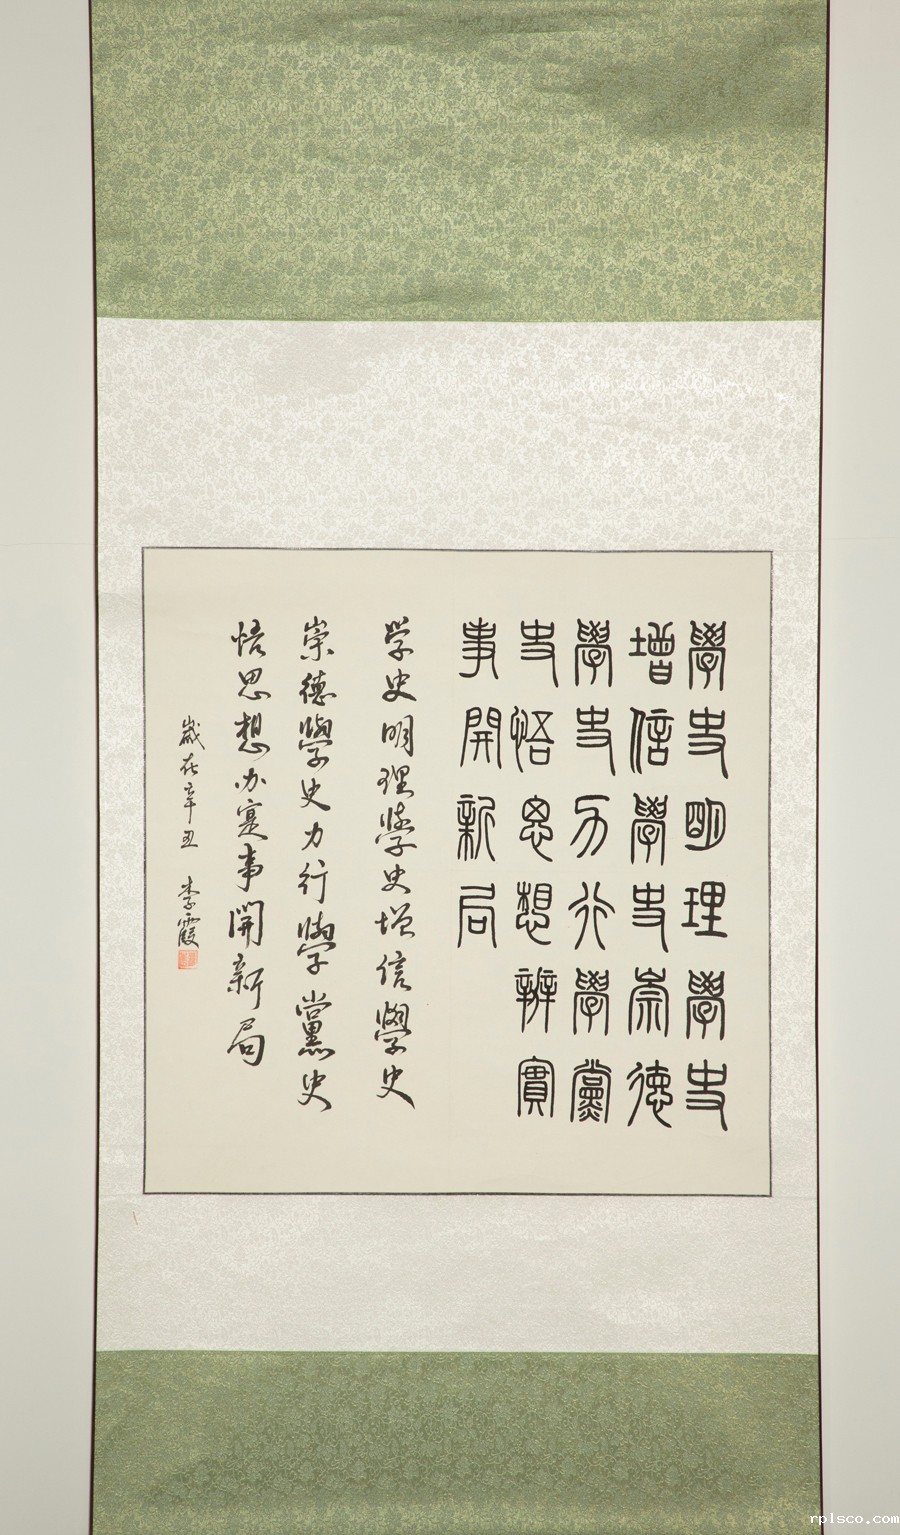 學史明理學史
增信學史崇德
學史力行學黨
史悟思想辦實
事開新局
学史明理學史增信學史
崇德學史力行學黨史
悟思想办寔事開新局
歲在辛丑 李霞
rplsco.com